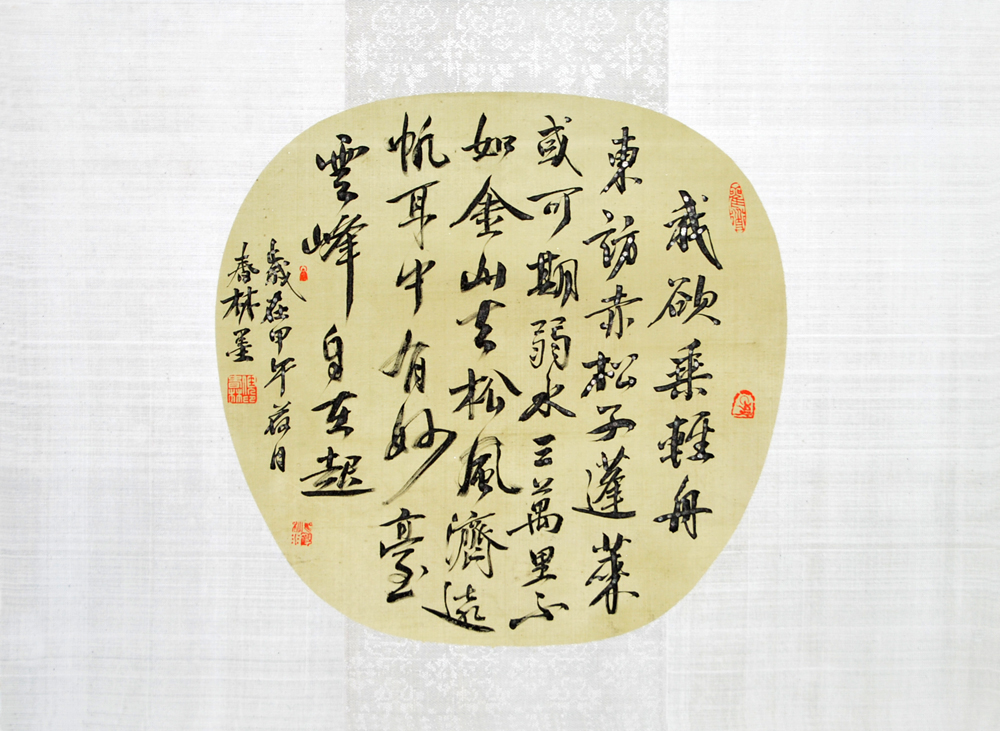 我欲乘輕舟
東訪赤松子蓬萊
或可期弱水三萬里不
如金山去松風濟遠
帆耳中有妙臺
雲峰自在起
歲在甲午荷月
春林墨